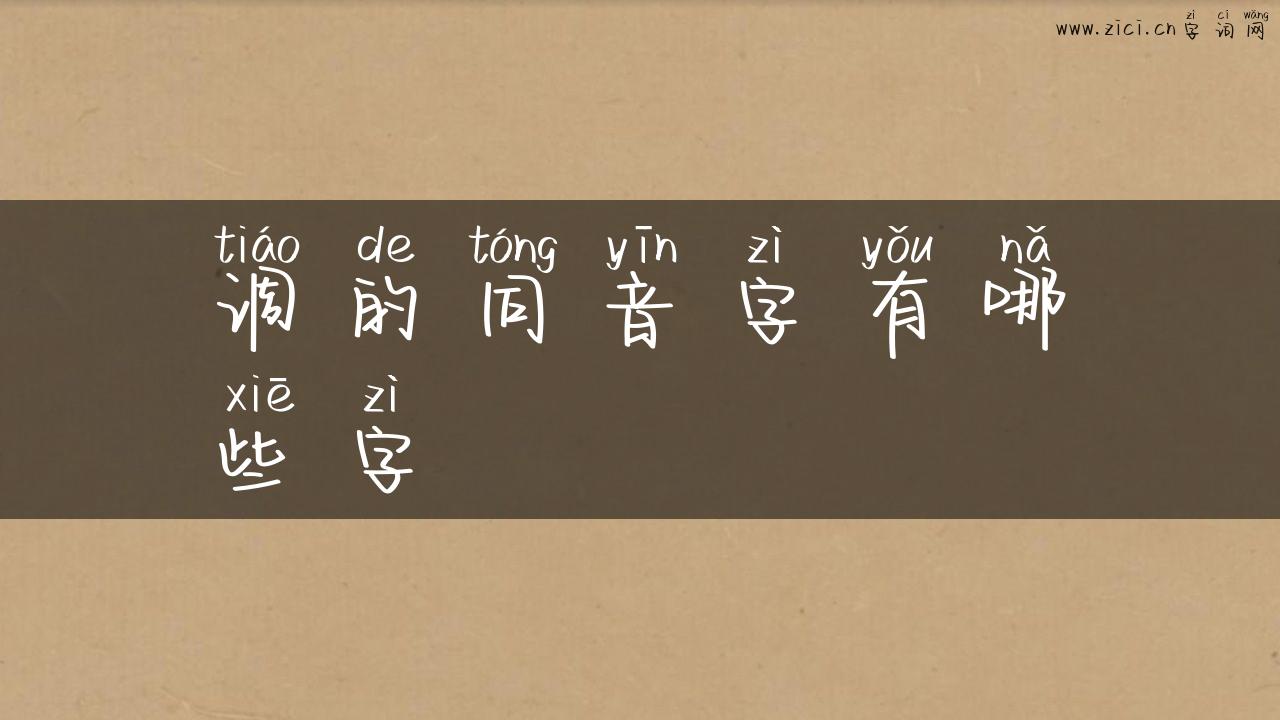 zì cí wǎng
www.zici.cn 字 词 网
tiáo de tóng yīn zì yǒu nǎ
调 的 同 音 字 有 哪
xiē zì
些 字